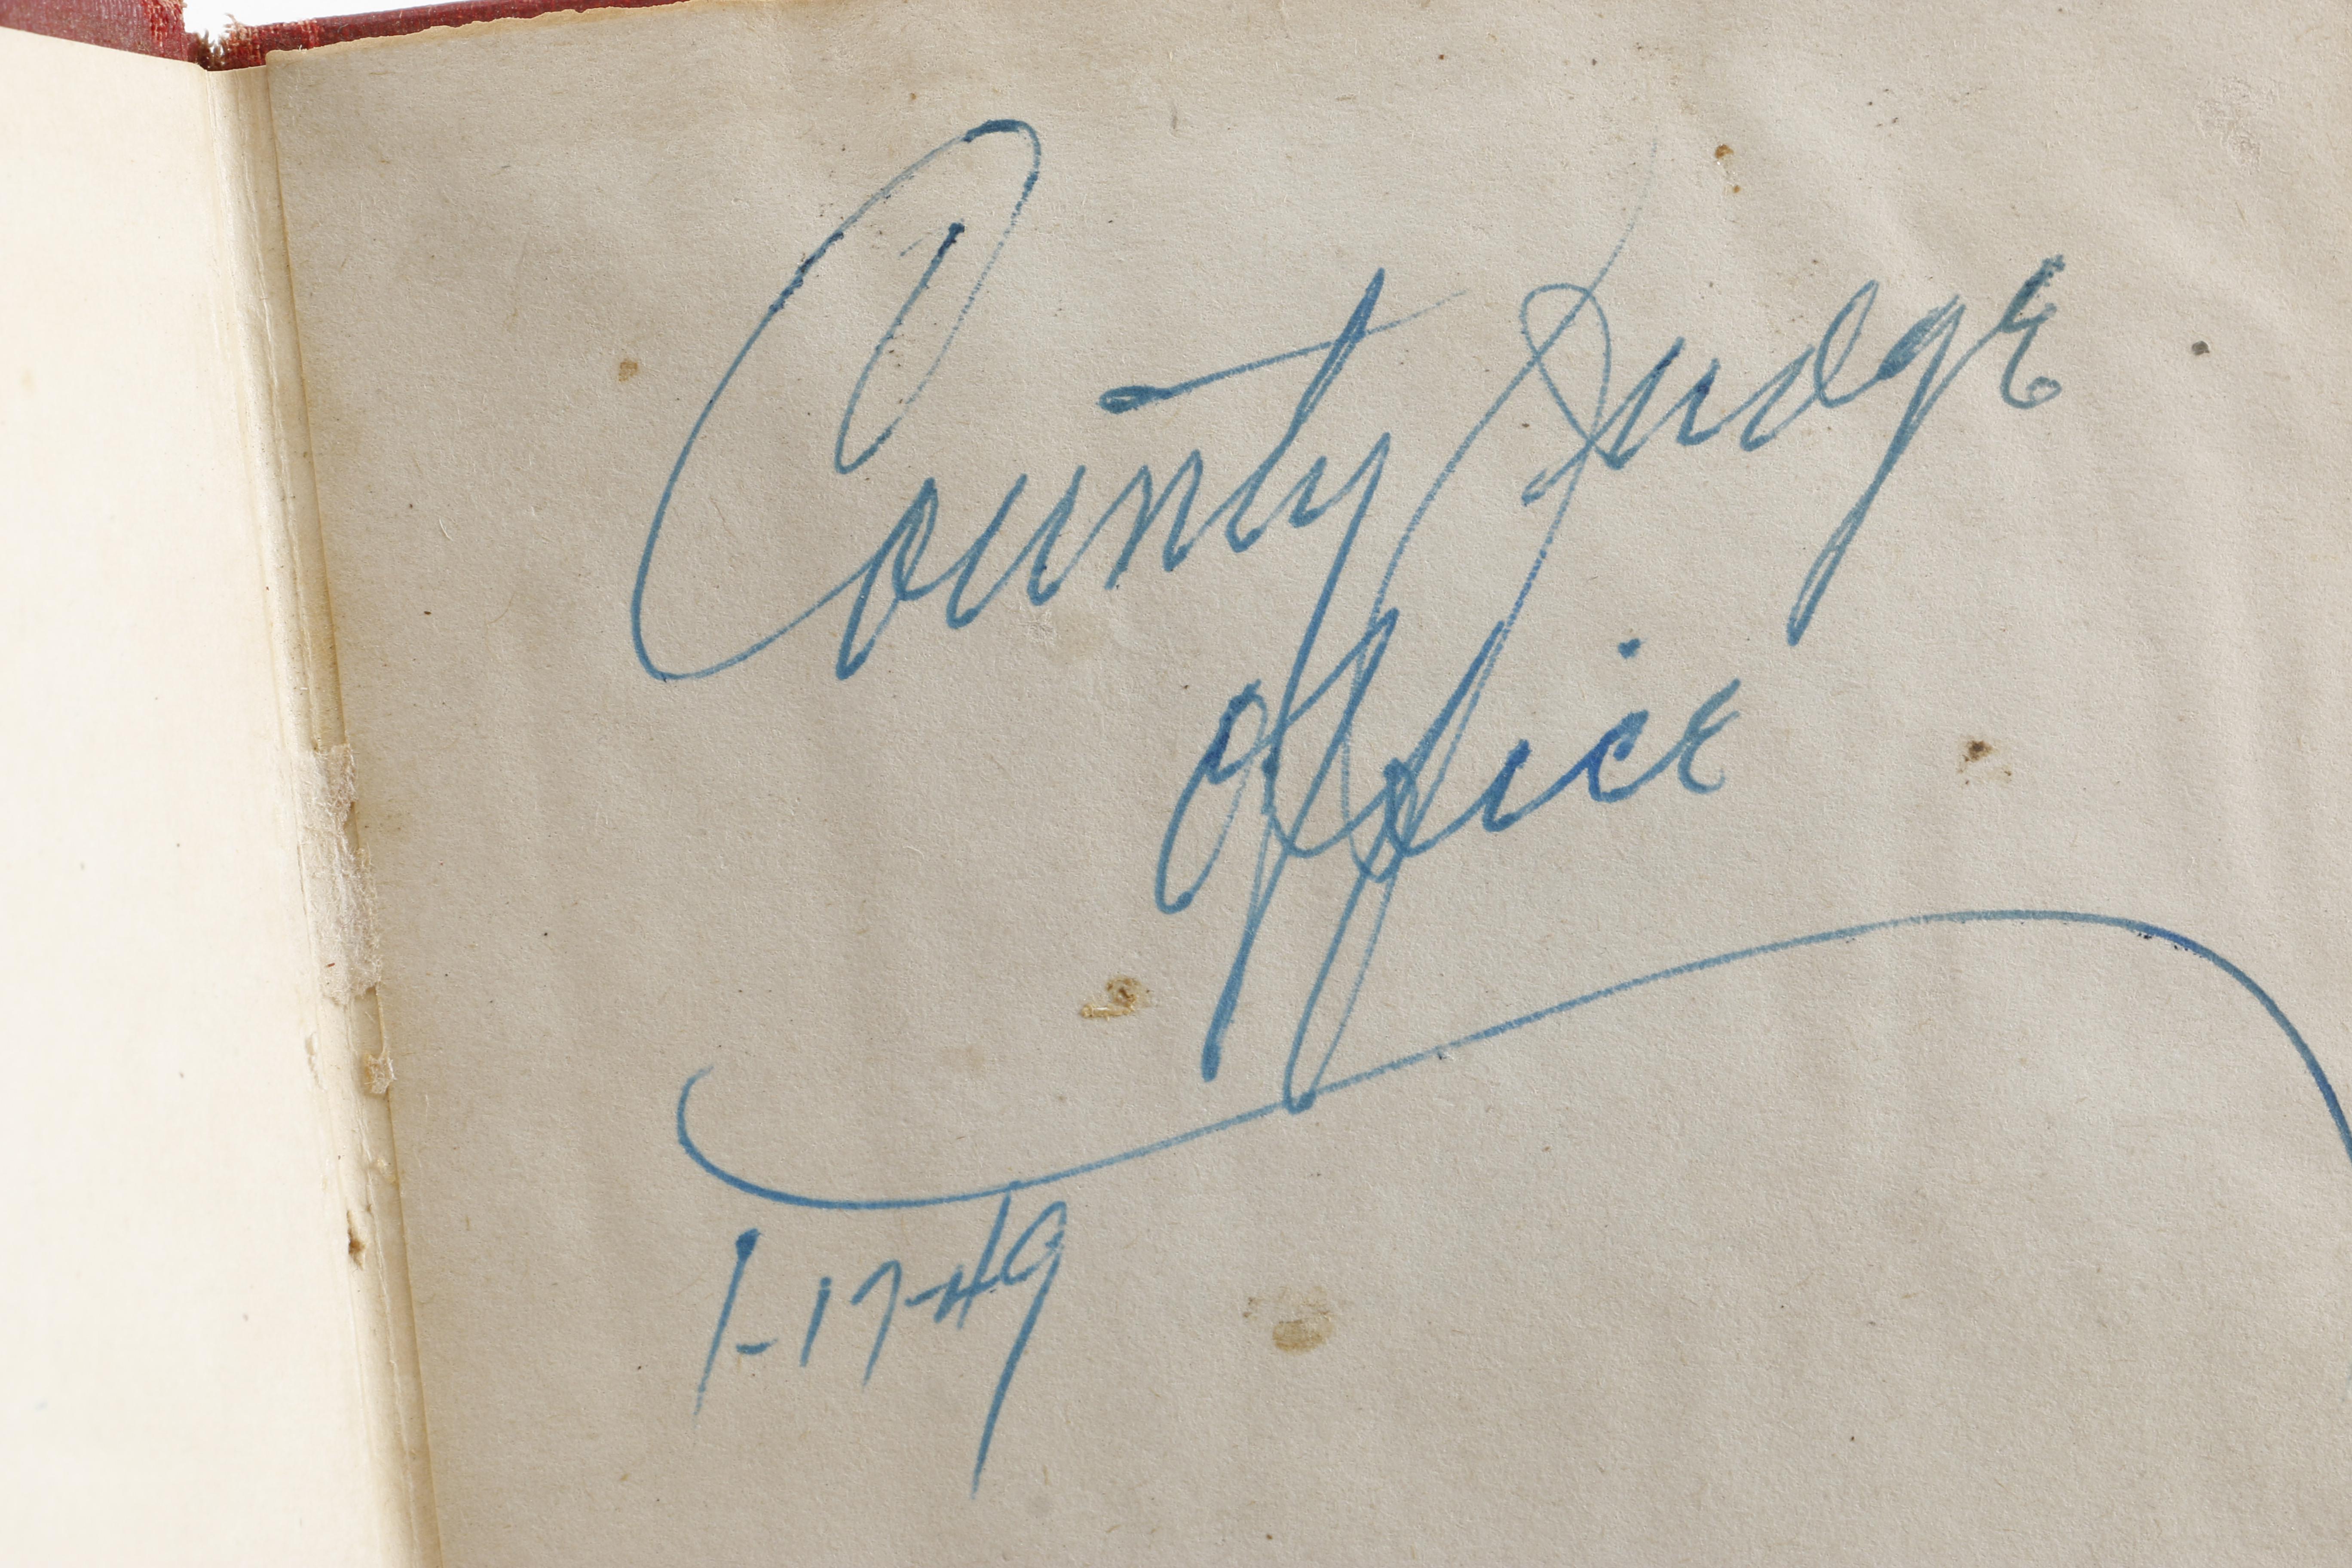 County Judge
Office
1-17-49